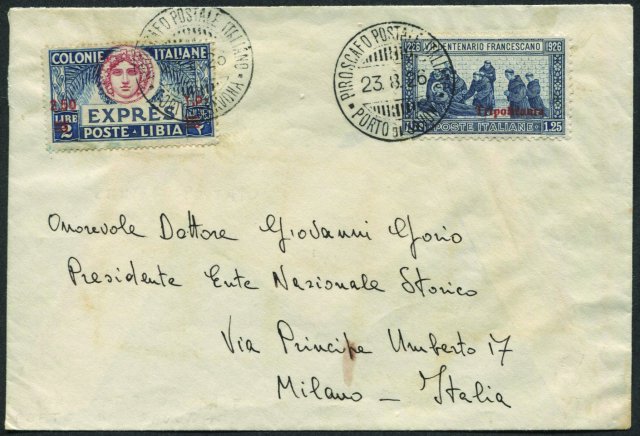 COLONIE ITALIANE
2.50
LIRE 2
EXPRES
POSTE - LIBIA
PIROSCAFO POSTALE ITALIANO
PIROSCAFO POSTALE
23. 8. 6
PORTO
1226 VII CENTENARIO FRANCESCANO 1926
Tripolitania
POSTE ITALIANE
1.25
Onorevole Dottore Giovanni Gorio
Presidente Ente Nazionale Storico
Via Principe Umberto 17
Milano - Italia